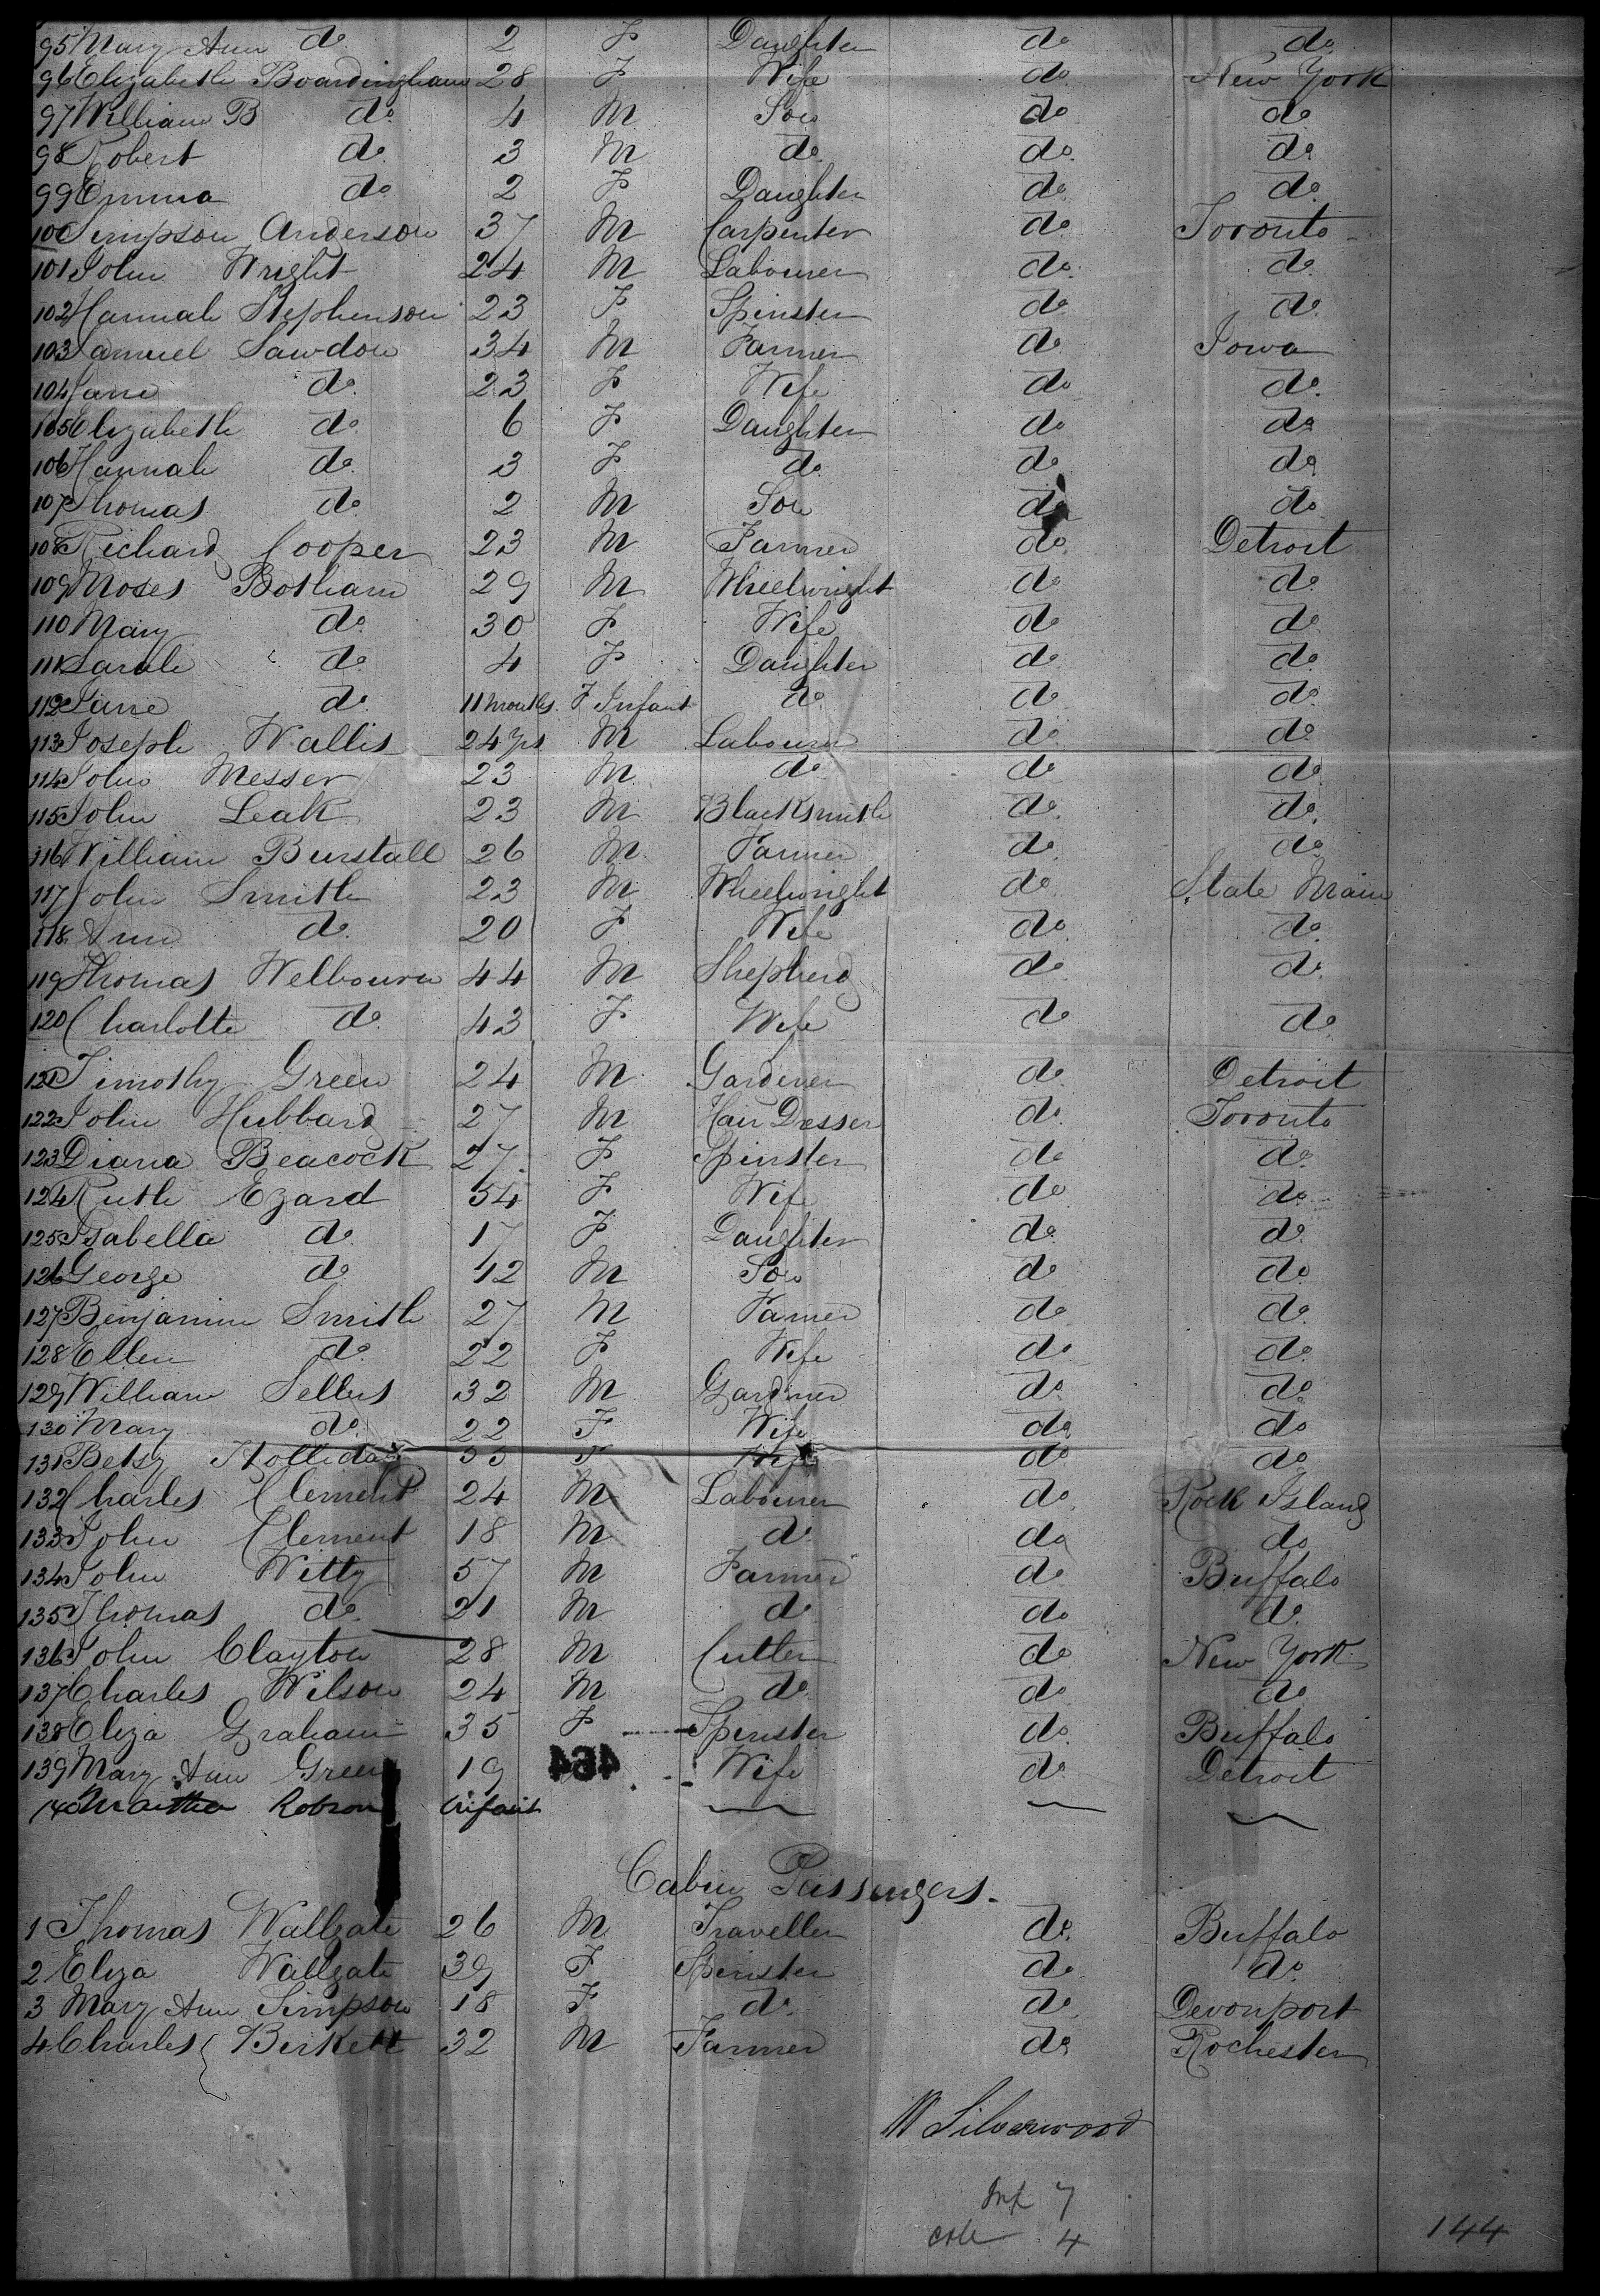 95 Mary Ann do 2 F Daughter do do
96 Elizabeth Boardingham 28 F Wife do New York
97 William B do 4 M Son do do
98 Robert do 3 M do do do
99 Emma do 2 F Daughter do do
100 Simpson Anderson 37 M Carpenter do Toronto
101 John Wright 24 M Labourer do do
102 Hannah Stephenson 23 F Spinster do do
103 Samuel Sawdon 34 M Farmer do Iowa
104 Jane do 23 F Wife do do
105 Elizabeth do 6 F Daughter do do
106 Hannah do 3 F do do do
107 Thomas do 2 M Son do do
108 Richard Cooper 23 M Farmer do Detroit
109 Moses Botham 29 M Wheelwright do do
110 Mary do 30 F Wife do do
111 Sarah do 4 F Daughter do do
112 Jane do 11 months F Infant do do do
113 Joseph Wallis 24 yrs M Labourer do do
114 John Messer 23 M do do do
115 John Leak 23 M Blacksmith do do
116 William Burstall 26 M Farmer do do
117 John Smith 23 M Wheelwright do State Main
118 Ann do 20 F Wife do do
119 Thomas Welbourn 44 M Shepherd do do
120 Charlotte do 43 F Wife do do
121 Timothy Green 24 M Gardener do Detroit
122 John Hubbard 27 M Hair Dresser do Toronto
123 Diana Beacock 27 F Spinster do do
124 Ruth Ezard 54 F Wife do do
125 Isabella do 17 F Daughter do do
126 George do 12 M Son do do
127 Benjamin Smith 27 M Farmer do do
128 Ellen do 22 F Wife do do
129 William Sellers 32 M Gardiner do do
130 Mary do 22 F Wife do do
131 Betsy Holliday F Wife do do
132 Charles Clement 24 M Labourer do Rock Island
133 John Clement 18 M do do do
134 John Witty 57 M Farmer do Buffalo
135 Thomas do 21 M do do do
136 John Clayton 28 M Cutler do New York
137 Charles Wilson 24 M do do do
138 Eliza Graham 35 F Spinster do Buffalo
139 Mary Ann Green 19 Wife do Detroit
464
140 Martha Robson Infant
Cabin Passengers.
1 Thomas Wallgate 26 M Traveller do Buffalo
2 Eliza Wallgate 39 F Spinster do do
3 Mary Ann Simpson 18 F do do Devonport
4 Charles Birkett 32 M Farmer do Rochester
W Silverwood
Inf 7
4
144